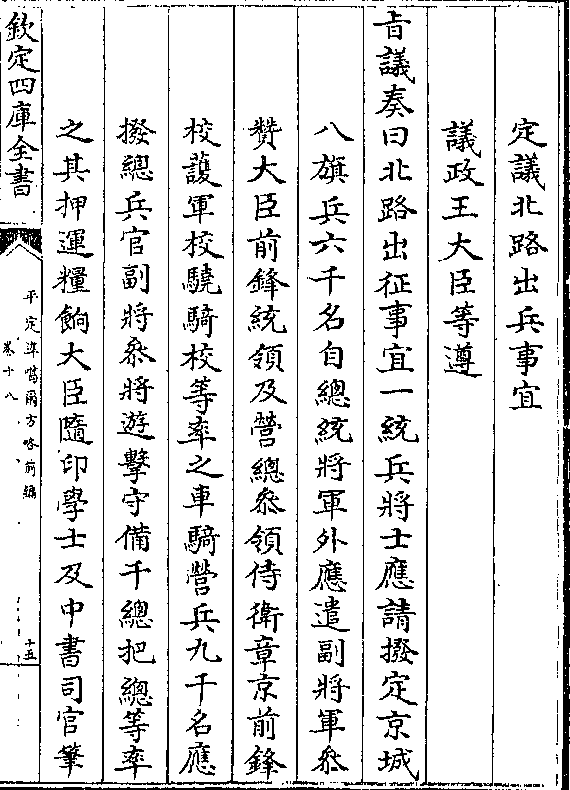 定議北路出兵事宜
議政王大臣等遵
旨議奏曰北路出征事宜一統兵將士應請撥定京城
八旗兵六千名自總統將軍外應遣副將軍叅
贊大臣前鋒統領及營總叅領侍衛章京前鋒
校護軍校驍騎校等率之車騎營兵九千名應
撥總兵官副將叅將遊擊守備千總把總等率
之其押運糧餉大臣隨印學士及中書司官筆
欽定四庫全書
平定準噶爾方畧前編
卷十八
十五